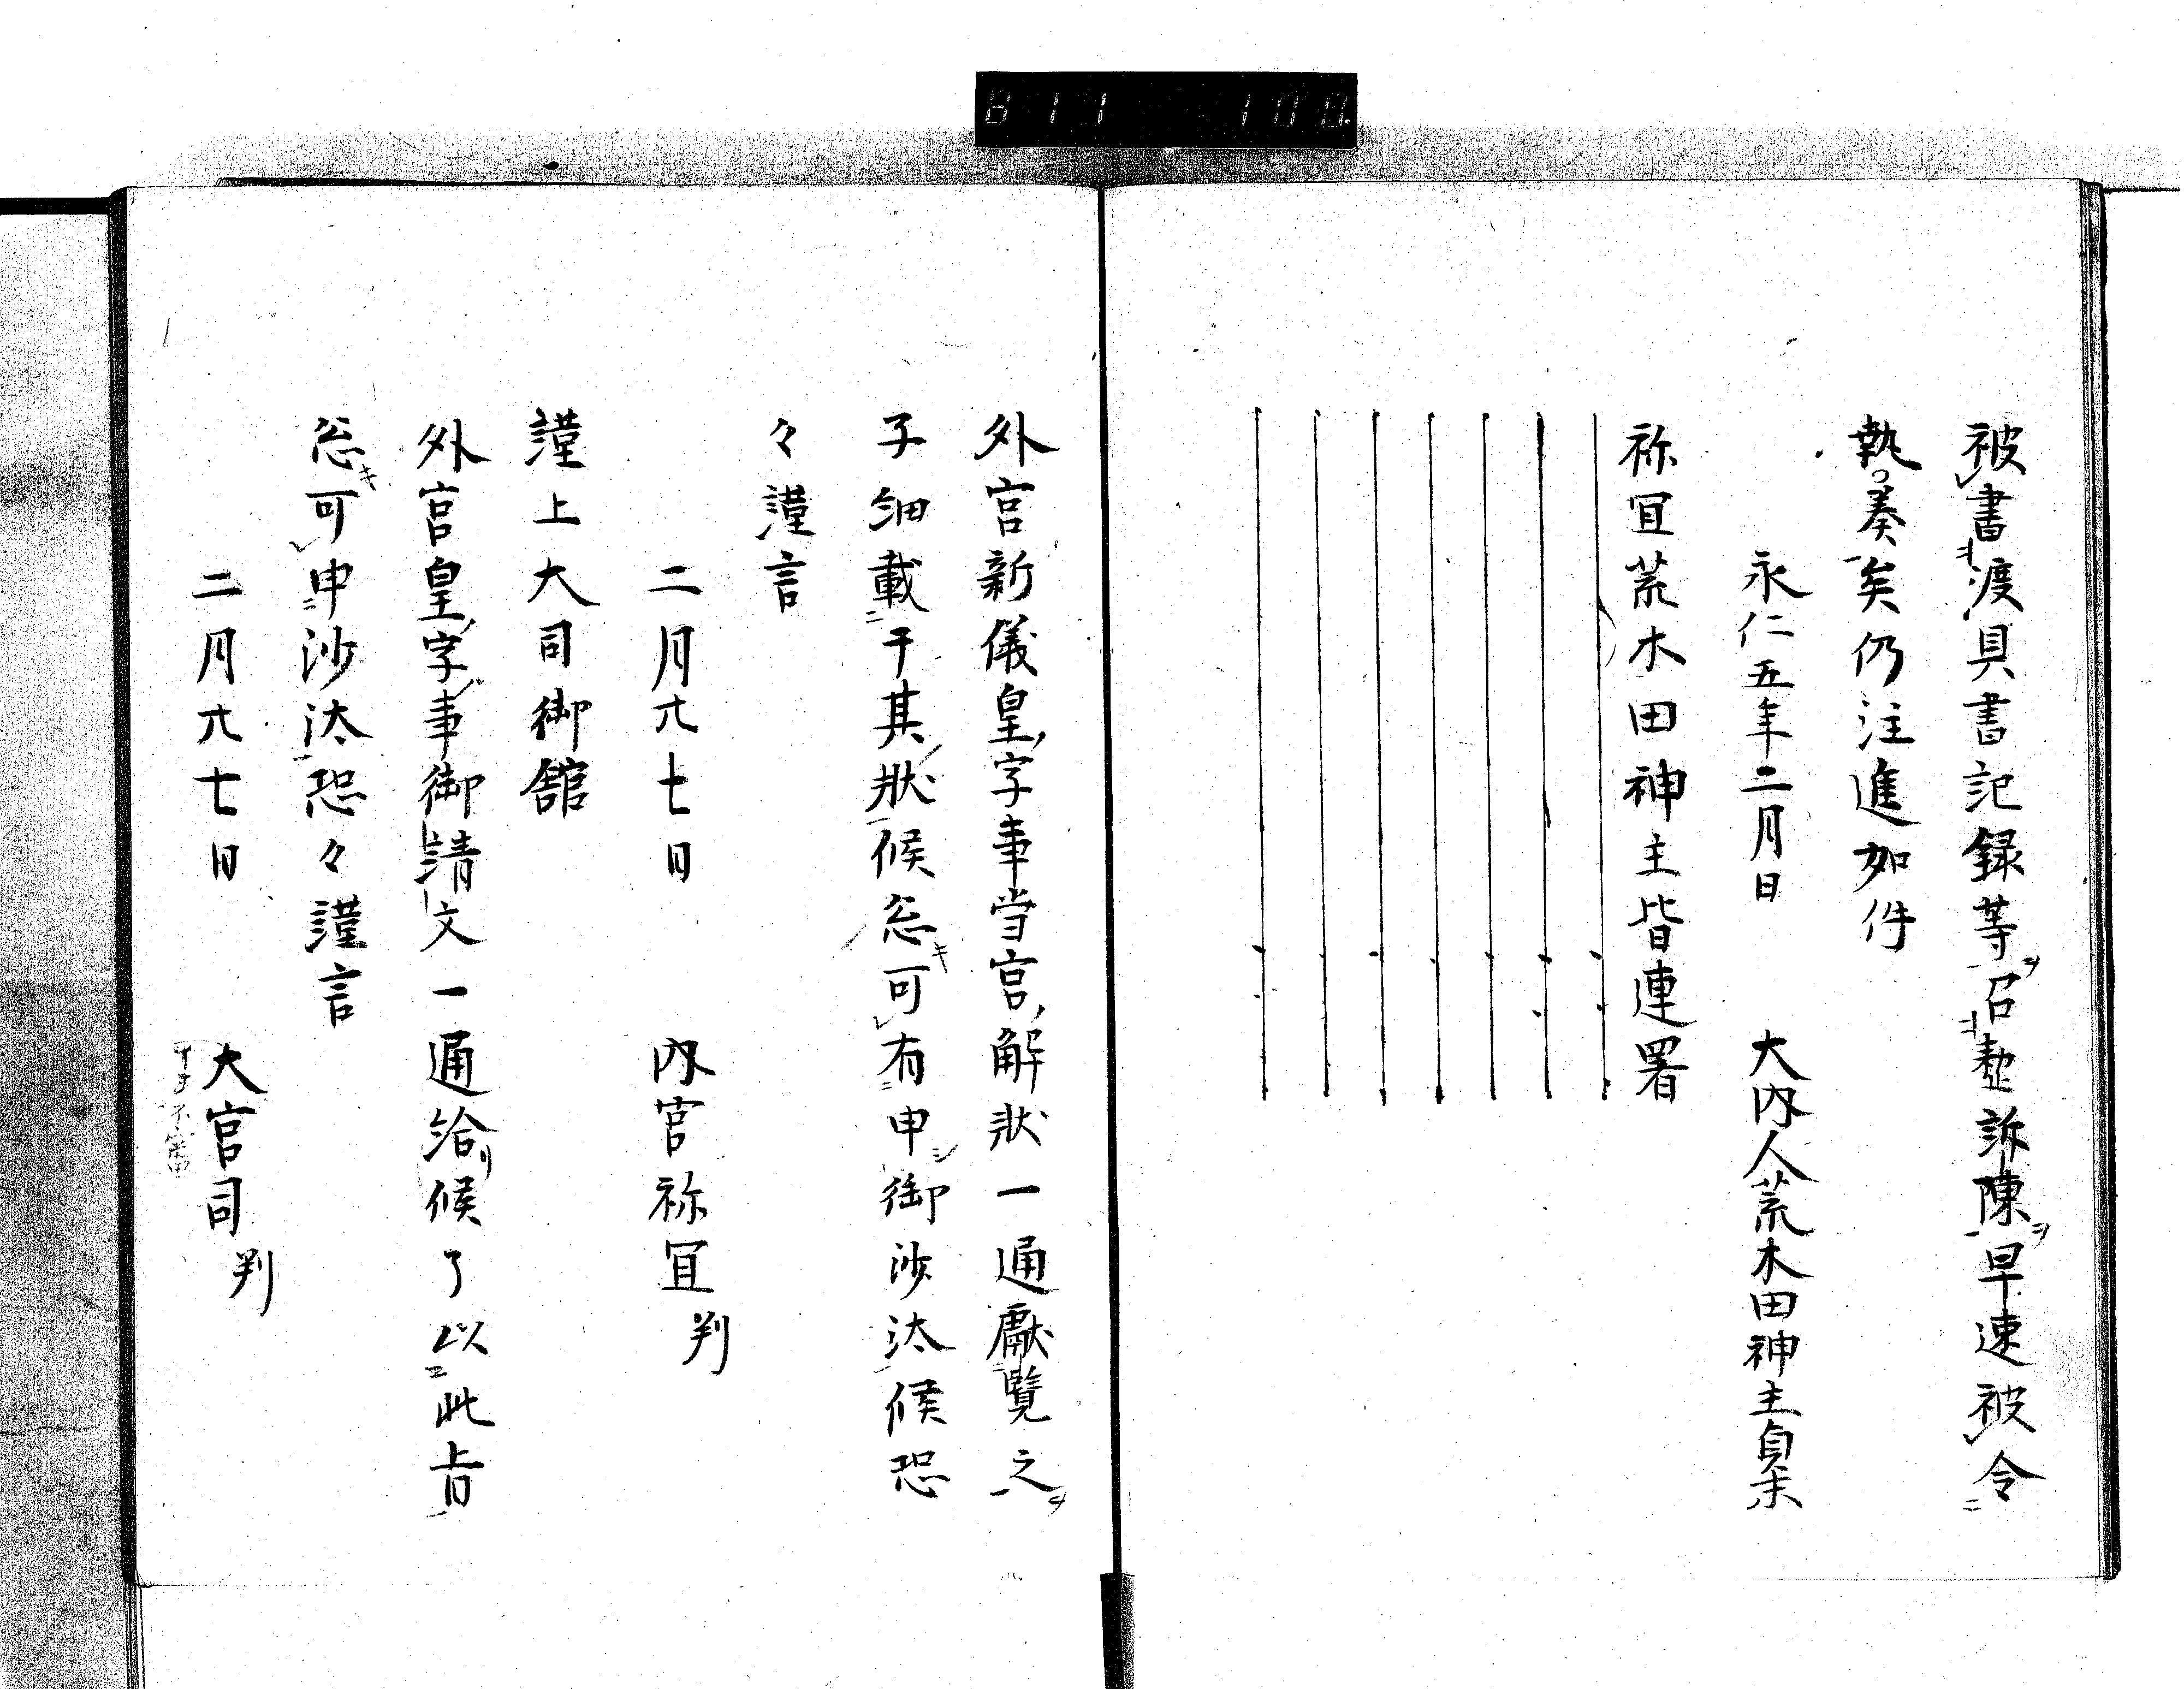 811 100.
被書渡具書記録等召整訴陳早速被令
執奏矣仍注進如件
永仁五年二月日 大内人荒木田神主員
祢冝荒木田神主皆連署
外宮新儀皇字事当宮解状一通献覧之
子細載于其状候忩可有申御沙汰候恐
々謹言
二月六七日 内宮祢冝判
謹上大司御舘
外宮皇字事御請文一通給候了以此旨
忩可申沙汰恐々謹言
二月六七日 大宮司判
不審